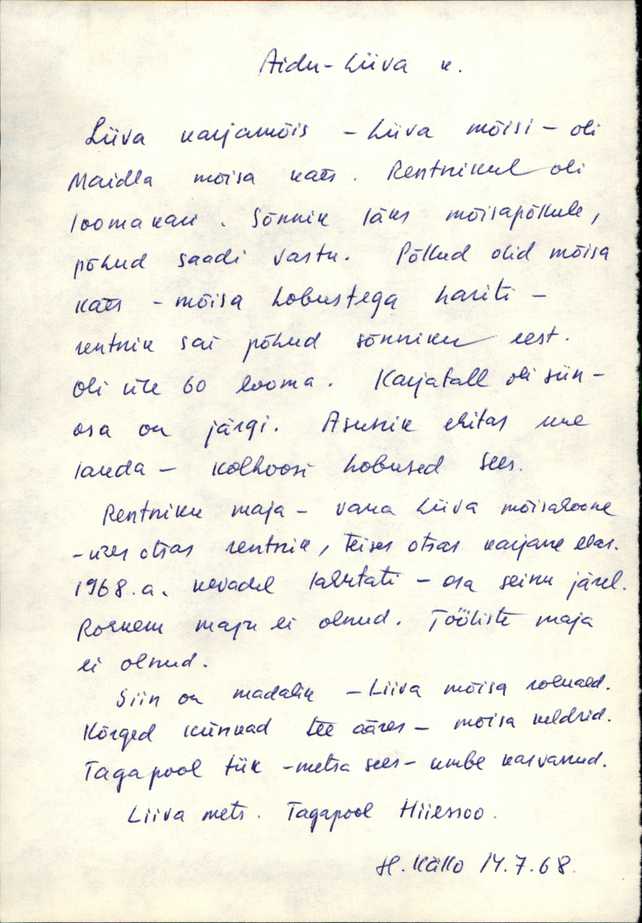 Aidu-Liiva k.
Liiva karjamõis - Liiva mõisi - oli
Maidla mõisa käes. Rentnikul oli
loomakari. Sõnnik läks mõisapõllule,
põhud saadi vastu. Põllud olid mõisa
käes - mõisa hobustega hariti -
rentnik sai põhud sõnniku eest.
Oli üle 60 looma. Karjatall oli siin -
osa on järgi. Asunik ehitas uue
lauda - kolhoosi hobused sees.
Rentniku maja - vana Liiva mõisahoone
- ühes otsas rentnik, teises otsas karjane elas.
1968.a. kevadel lahutati - osa seinu järel.
Rohkem maju ei olnud. Tööliste maja
ei olnud.
Siin on madalik - Liiva mõisa
Kõrged künkad tee ääres - mõisa keldrid.
Tagapool tiik - metsa sees - umbe kasvanud.
Liiva mets. Tagapool Hiiesoo.
H. Källo 14.7.68.